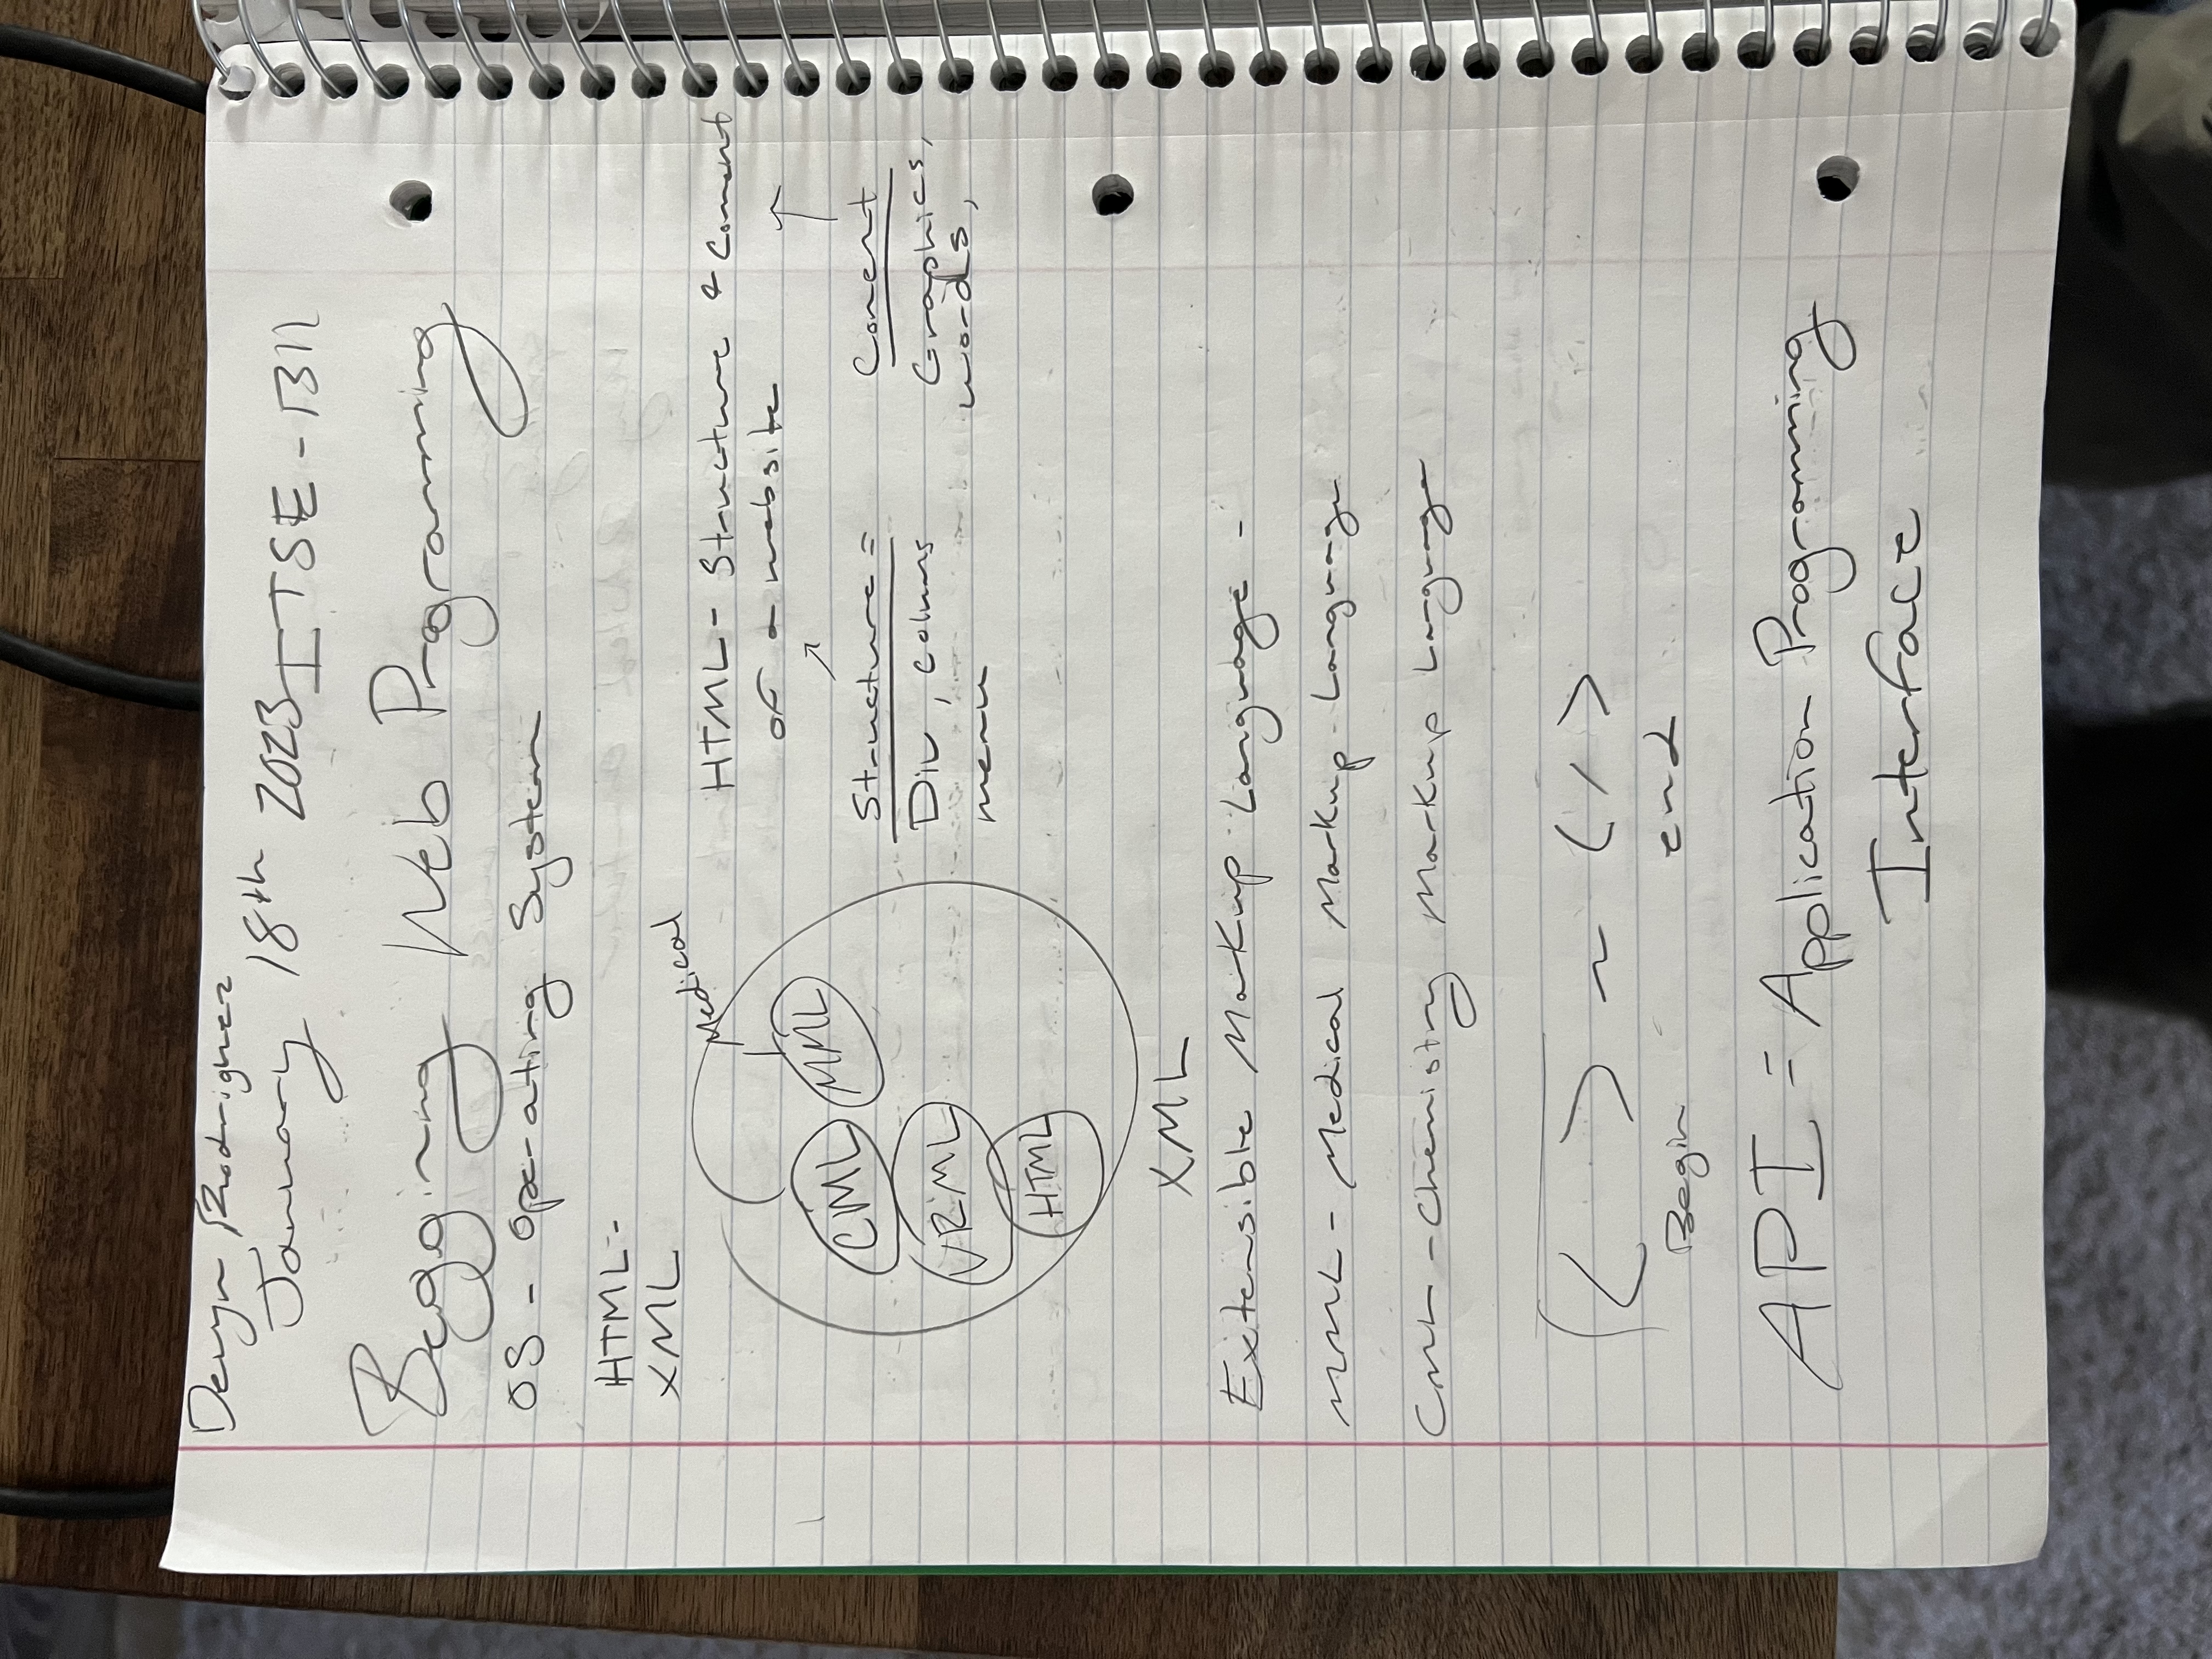 Devyn Rodriguez
January 18th 2023 ITSE-1311
Beggining Web Programing
OS - Operating System
HTML-
XML
HTML- Structure & Conent
of a website
Medical
Structure =
Div, colums
menu
Conent
Graphics,
words,
CML
MML
VRML
HTML
XML
Extensible Markup Language -
MML - Medical Markup Language
CML - Chemistry Markup Language
< > ~ </>
Begin
end
API - Application Programing
Interface